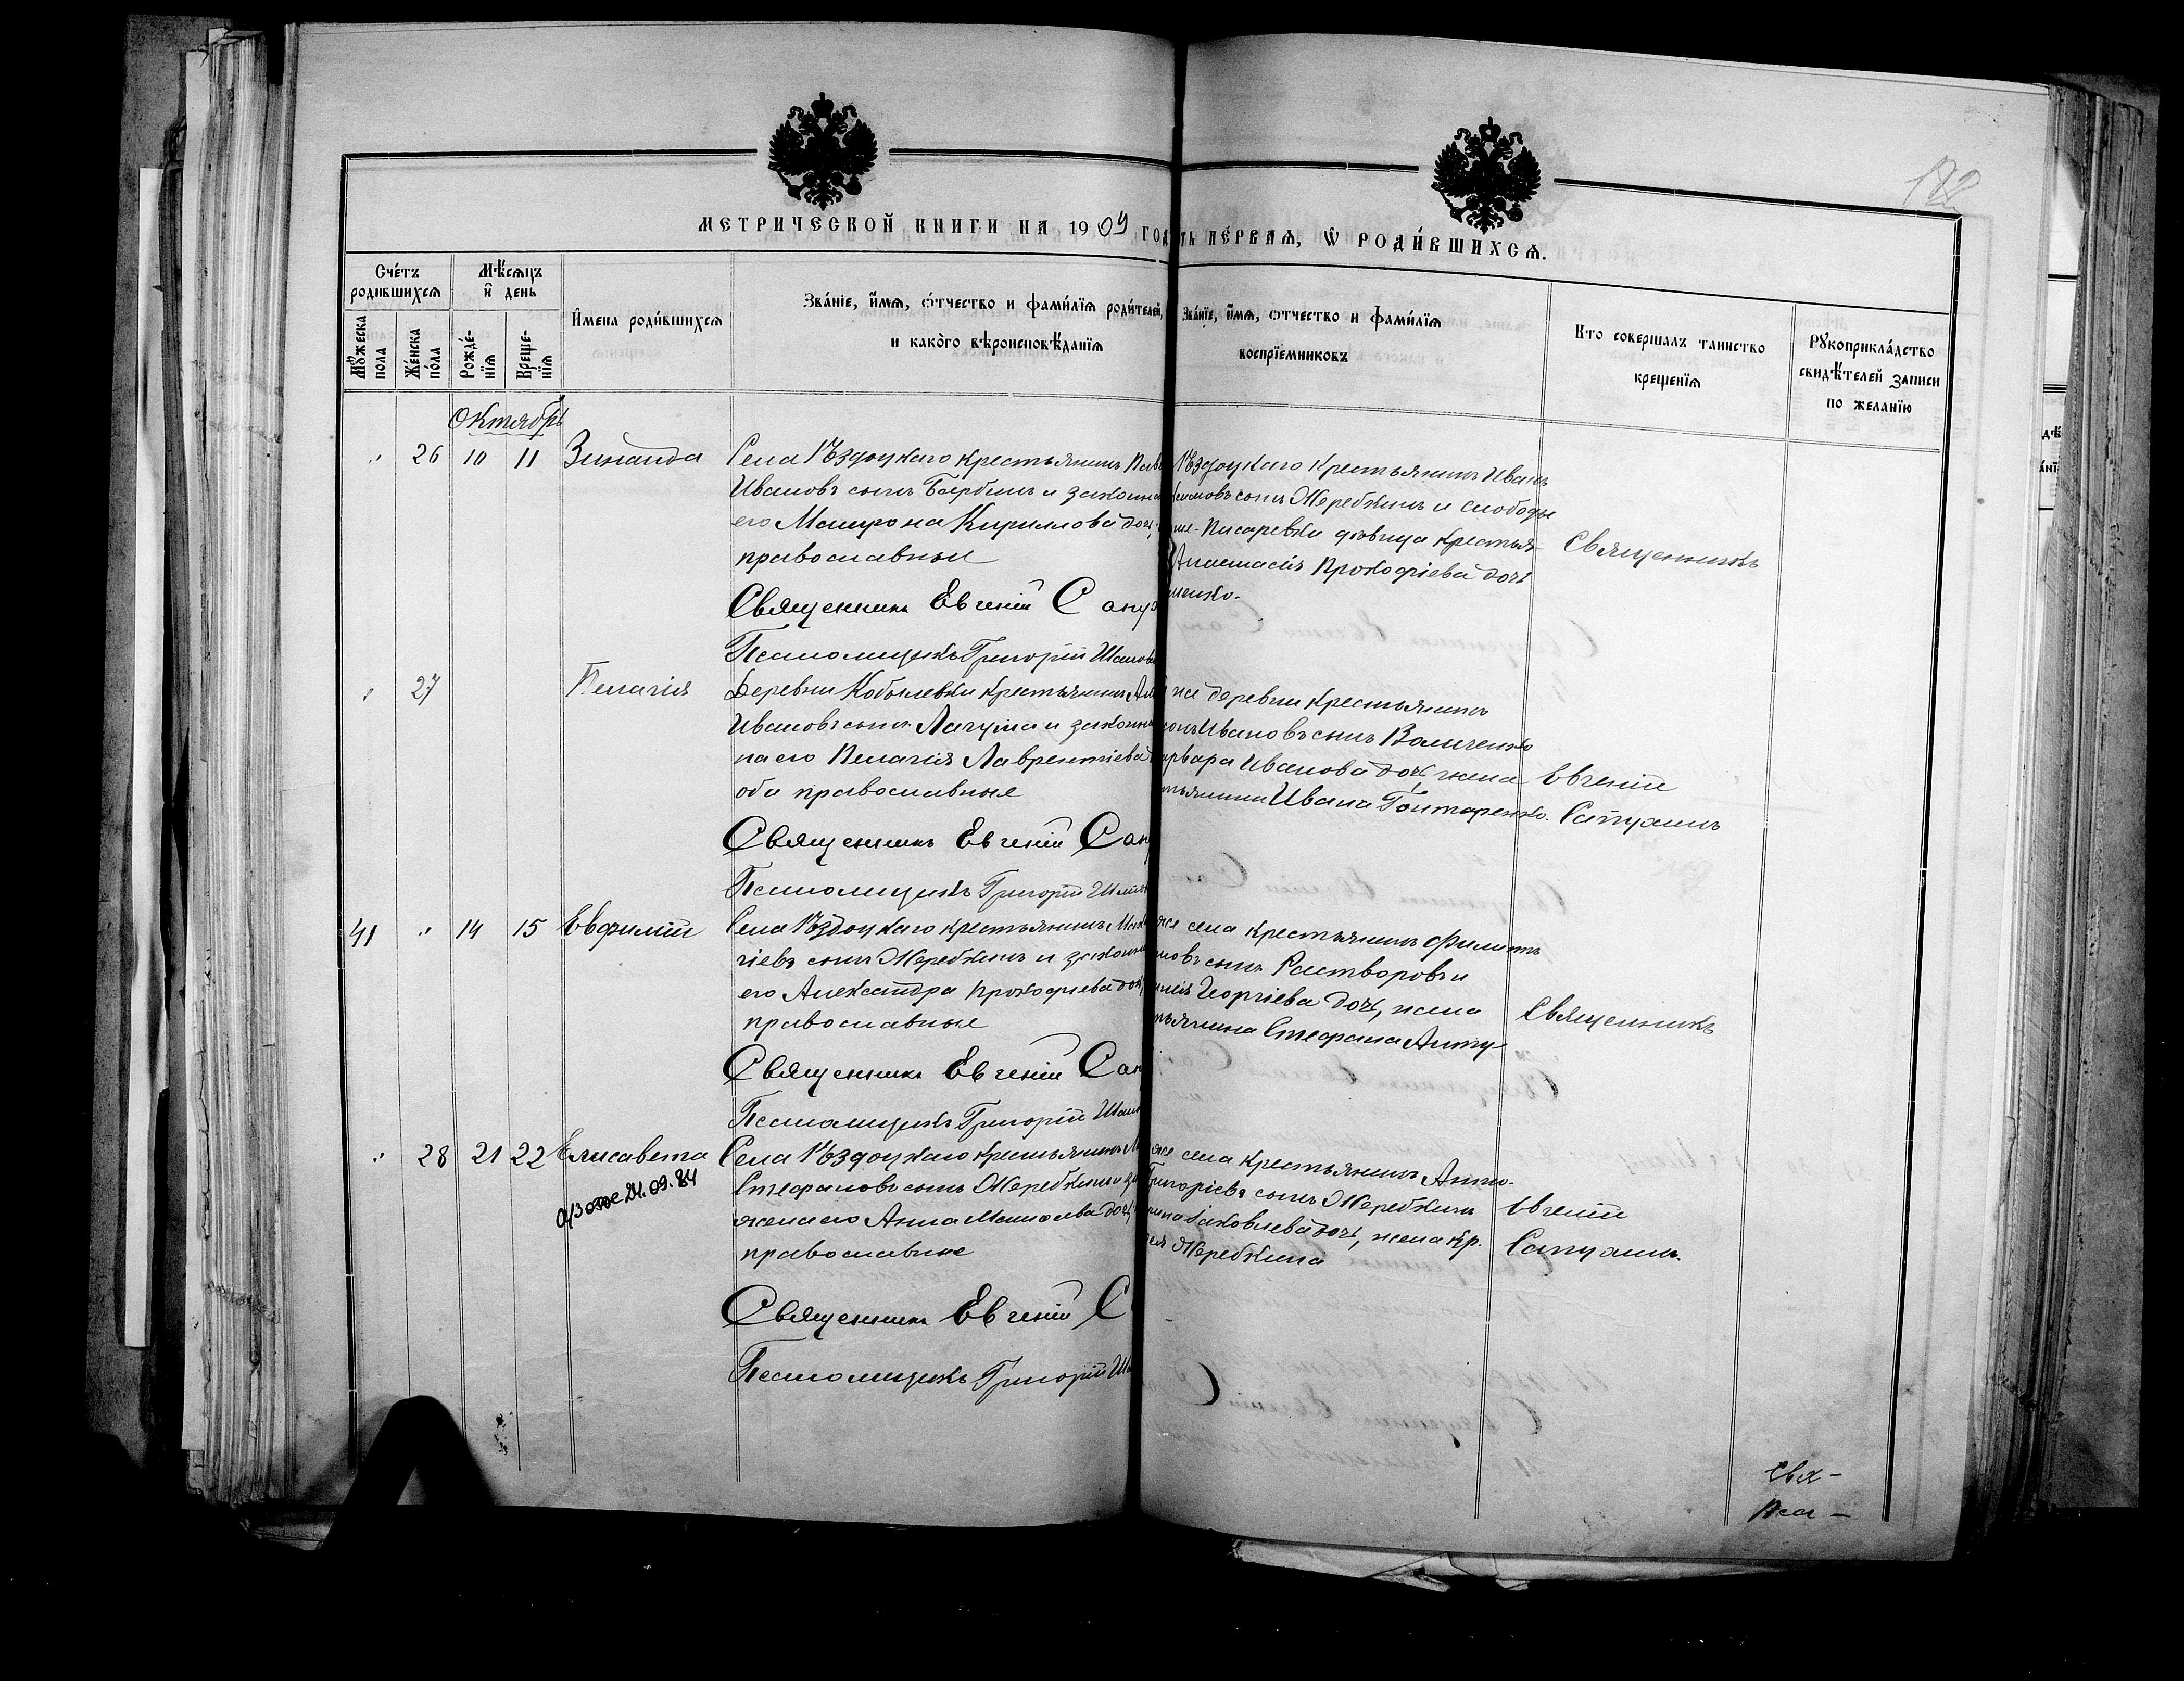 122
МЕТРИЧЕСКОЙ КНИГИ НА 1909 ГОД
ТЬ ПЕ́РВАЯ, Ѡ РОДИ́ВШИХСЯ.
Сче́тъ родившихся
Мѣ́сяцъ и день
Му́жеска пола
Же́нска по́ла
Рожде́-нїя
Креще-нїя
И҆мена роди́вшихся
Зва́нїе, и҆́мя, ѻ҆́тчество и фами́лїя роди́телей,
и како́го вѣроисповѣ́данїя
Зва́нїе, и҆́мя, ѻтчество и фами́лїя
воспрїемниковъ
Кто совершалъ таинство
крещенїя
Рꙋкоприкла́дство
свидѣ́телей записи
по желанїю
Октябрь
" 26 10 11 Зинаида
Села Ѣздоцкаго крестьянинъ Пав
Ивановъ сынъ Бырбинъ и законна
его Матрона Кириллова дочь,
православные
Священникъ Евгеній Сапу
Псаломщикъ Григорій
Ѣздоцкаго Крестьянинъ Иванъ
кимовъ сынъ Жеребкинъ и слободы
Писаревки дѣвица крестья-
Анастасія Прокофіева дочь
менко.
Священникъ
" 27 Пелагія
Деревни Кобылевки крестьянинъ Але
Ивановъ сынъ Лагута и законна
на его Пелагія Лаврентіева
оба православные
Священникъ Евгеній Сап
Псаломщикъ Григорій
же деревни крестьянинъ
Ивановъ сынъ Вальченко
арвара Иванова дочь, жена
тьянина Ивана Гонтаренко.
Евгеній
Сапухинъ
41 " 14 15 Евфимій
Села Ѣздоцкаго крестьянинъ
гіевъ сынъ Жеребкинъ и законна
его Александра Прокофіева дочь,
православные
Священникъ Евгеній Сап
Псаломщикъ Григорій
же села крестьянинъ Филиппъ
новъ сынъ Растворовъ и
Георгіева дочь, жена
тьянина Стефана
Священникъ
" 28 21 22 Елисавета
24.09.84
Села Ѣздоцкаго крестьянинъ
Стефановъ сынъ Жеребкинъ и за
жена его Анна Мануилова дочь,
православные
Священникъ Евгеній С
Псаломщикъ Григорій
же села крестьянинъ
Григоріевъ сынъ Жеребкинъ
Іаковлева дочь, жена кр.
Жеребкина
Евгеній
Сапухинъ.
Свя-
Пса-